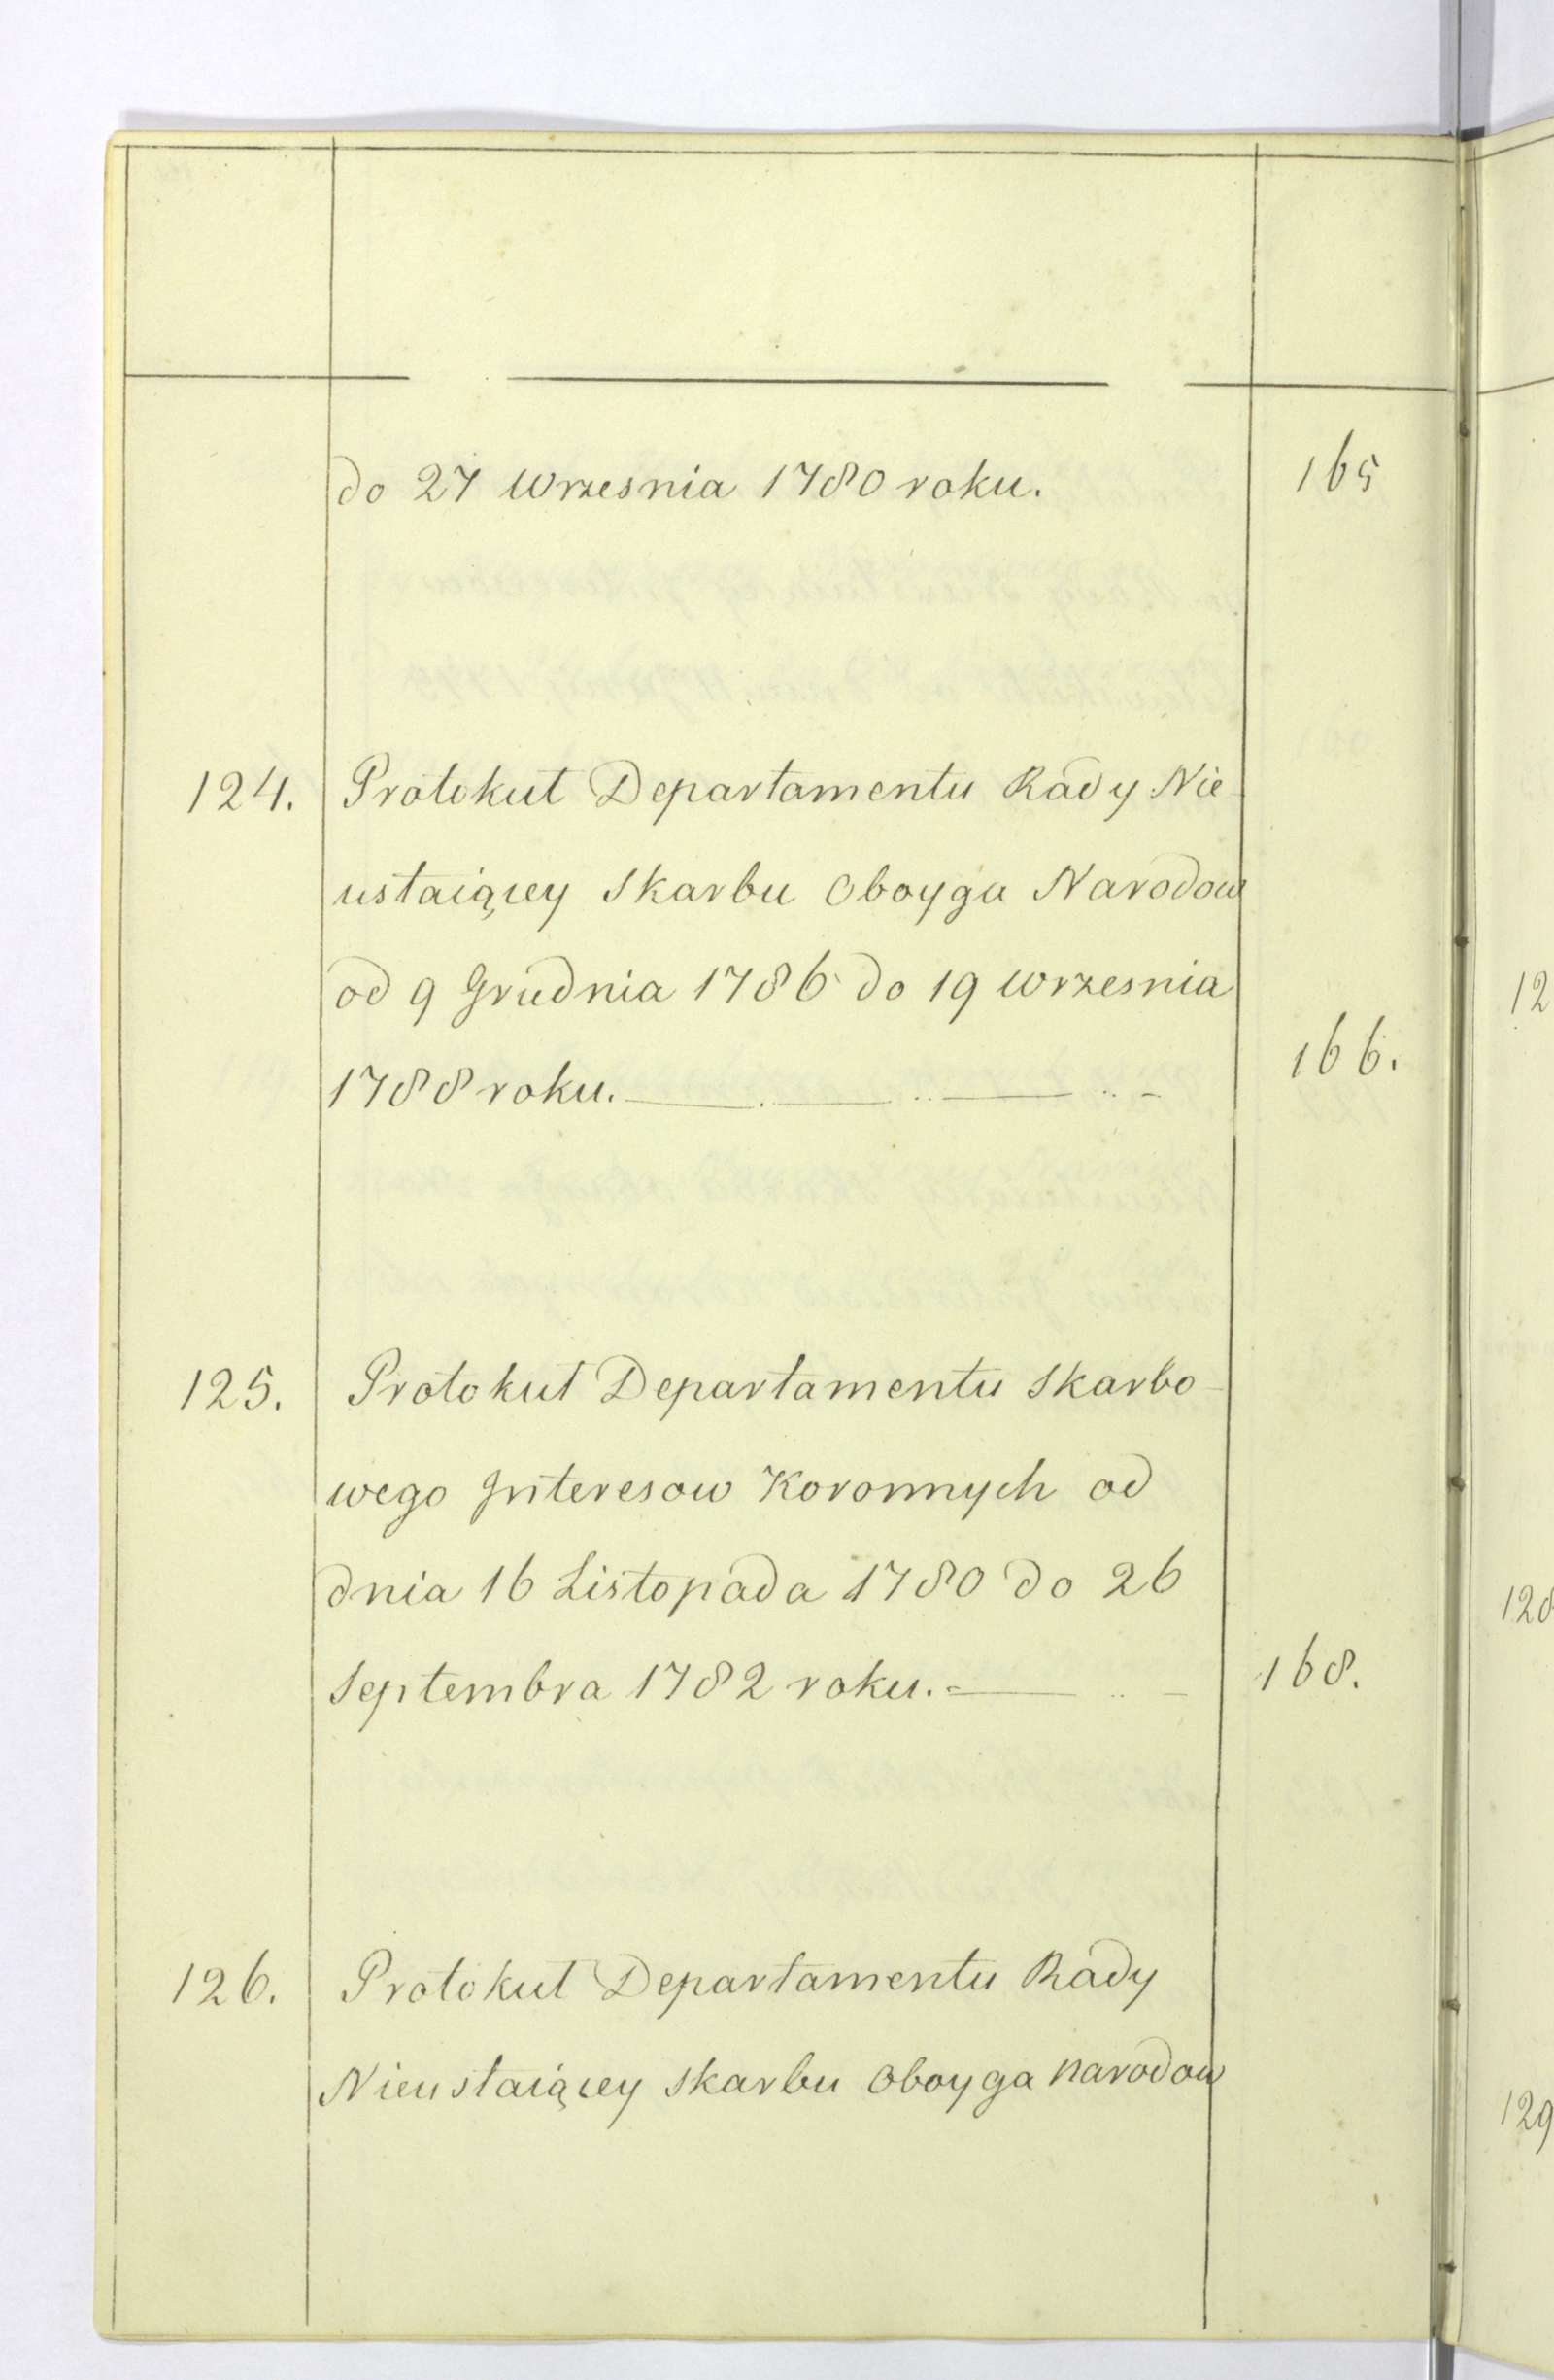 do 27 Wrzesnia 1780 roku. 165
124. Protokuł Departamentu Rady Nie-
ustaiącey Skarbu Oboyga Narodow
od 9 Grudnia 1786 do 19 Wrzesnia
1788 roku. 166.
125. Protokuł Departamentu Skarbo-
wego Interesow Koronnych od
dnia 16 Listopada 1780 do 26
Septembra 1782 roku. 168.
126. Protokuł Departamentu Rady
Nieustaiącey Skarbu Oboyga Narodow
129